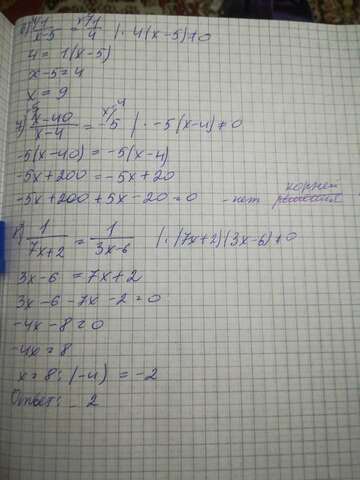 6) 1/x-5 = 1/4 | · 4(x-5)≠0
4 = 1(x-5)
x-5=4
x = 9
7) x-40/x-4 = -5 | · -5(x-4)≠0
-5(x-40) = -5(x-4)
-5x+200 = -5x+20
-5x+200+5x-20=0 - нет корней
8) 1/7x+2 = 1/3x-6 | · (7x+2)(3x-6)≠0
3x-6 = 7x+2
3x-6-7x-2=0
-4x-8=0
-4x=8
x=8:(-4) = -2
Ответ: -2